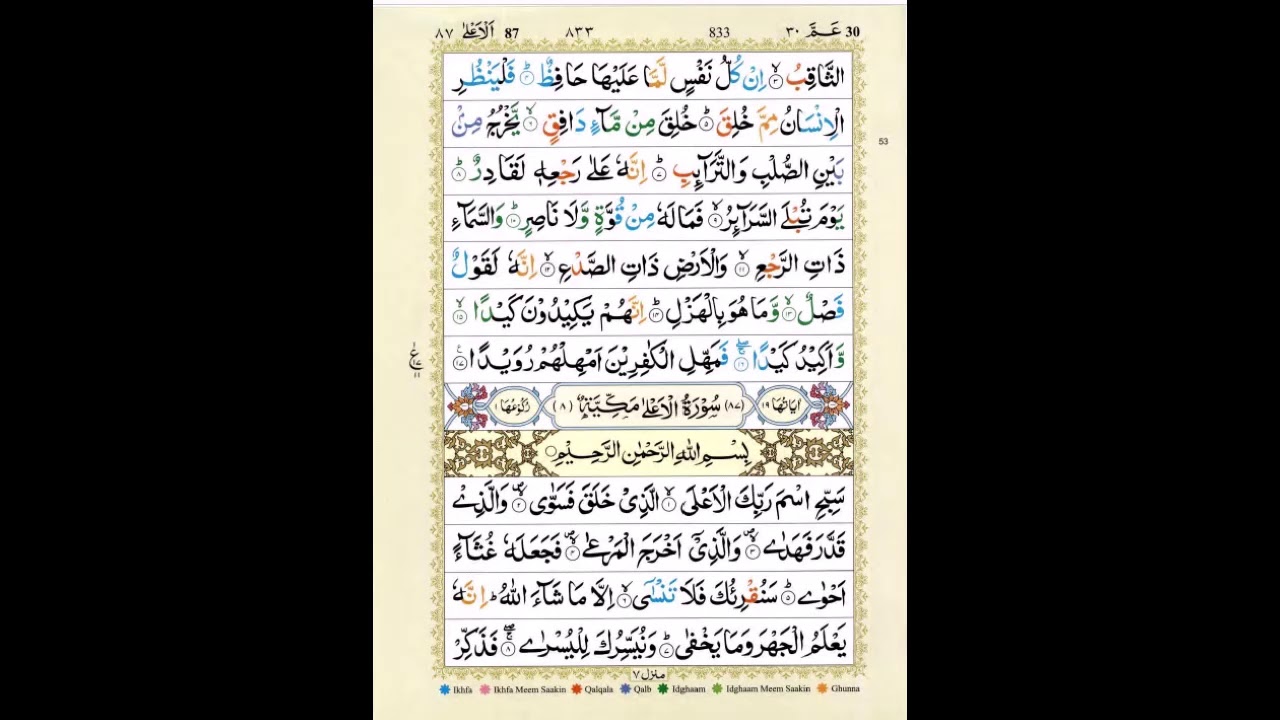 ٨٧ اَلْاَعْلٰى 87 ٨٣٣ 833 ٣٠ عَمَّ 30
الثَّاقِبُ ۙ﴿۳﴾ اِنْ كُلُّ نَفْسٍ لَّمَّا عَلَيْهَا حَافِظٌ ؕ﴿۴﴾ فَلْيَنْظُرِ
الْاِنْسَانُ مِمَّ خُلِقَ ؕ﴿۵﴾ خُلِقَ مِنْ مَّآءٍ دَافِقٍ ۙ﴿۶﴾ يَّخْرُجُ مِنْۢ
53
بَيْنِ الصُّلْبِ وَالتَّرَآئِبِ ؕ﴿۷﴾ اِنَّهٗ عَلٰى رَجْعِهٖ لَقَادِرٌ ؕ﴿۸﴾
يَوْمَ تُبْلَى السَّرَآئِرُ ۙ﴿۹﴾ فَمَا لَهٗ مِنْ قُوَّةٍ وَّلَا نَاصِرٍ ؕ﴿۱۰﴾ وَالسَّمَآءِ
ذَاتِ الرَّجْعِ ۙ﴿۱۱﴾ وَالْاَرْضِ ذَاتِ الصَّدْعِ ۙ﴿۱۲﴾ اِنَّهٗ لَقَوْلٌ
فَصْلٌ ۙ﴿۱۳﴾ وَّمَا هُوَ بِالْهَزْلِ ؕ﴿۱۴﴾ اِنَّهُمْ يَكِيْدُوْنَ كَيْدًا ۙ﴿۱۵﴾
وَّاَكِيْدُ كَيْدًا ۚۖ﴿۱۶﴾ فَمَهِّلِ الْكٰفِرِيْنَ اَمْهِلْهُمْ رُوَيْدًا ﴿۱۷﴾
اٰيَاتُهَا ١٩ (٨٧) سُوْرَةُ الْاَعْلٰى مَكِّيَّةٌ (٨) رُكُوْعُهَا ١
بِسْمِ اللهِ الرَّحْمٰنِ الرَّحِيْمِ
سَبِّحِ اسْمَ رَبِّكَ الْاَعْلَى ۙ﴿۱﴾ الَّذِيْ خَلَقَ فَسَوّٰى ۪ۙ﴿۲﴾ وَالَّذِيْ
قَدَّرَ فَهَدٰى ۪ۙ﴿۳﴾ وَالَّذِيْۤ اَخْرَجَ الْمَرْعٰى ۪ۙ﴿۴﴾ فَجَعَلَهٗ غُثَآءً
اَحْوٰى ؕ﴿۵﴾ سَنُقْرِئُكَ فَلَا تَنْسٰۤى ۙ﴿۶﴾ اِلَّا مَا شَآءَ اللهُ ؕ اِنَّهٗ
يَعْلَمُ الْجَهْرَ وَمَا يَخْفٰى ؕ﴿۷﴾ وَنُيَسِّرُكَ لِلْيُسْرٰى ۚۖ﴿۸﴾ فَذَكِّرْ
منزل ٧
Ikhfa Ikhfa Meem Saakin Qalqala Qalb Idghaam Idghaam Meem Saakin Ghunna